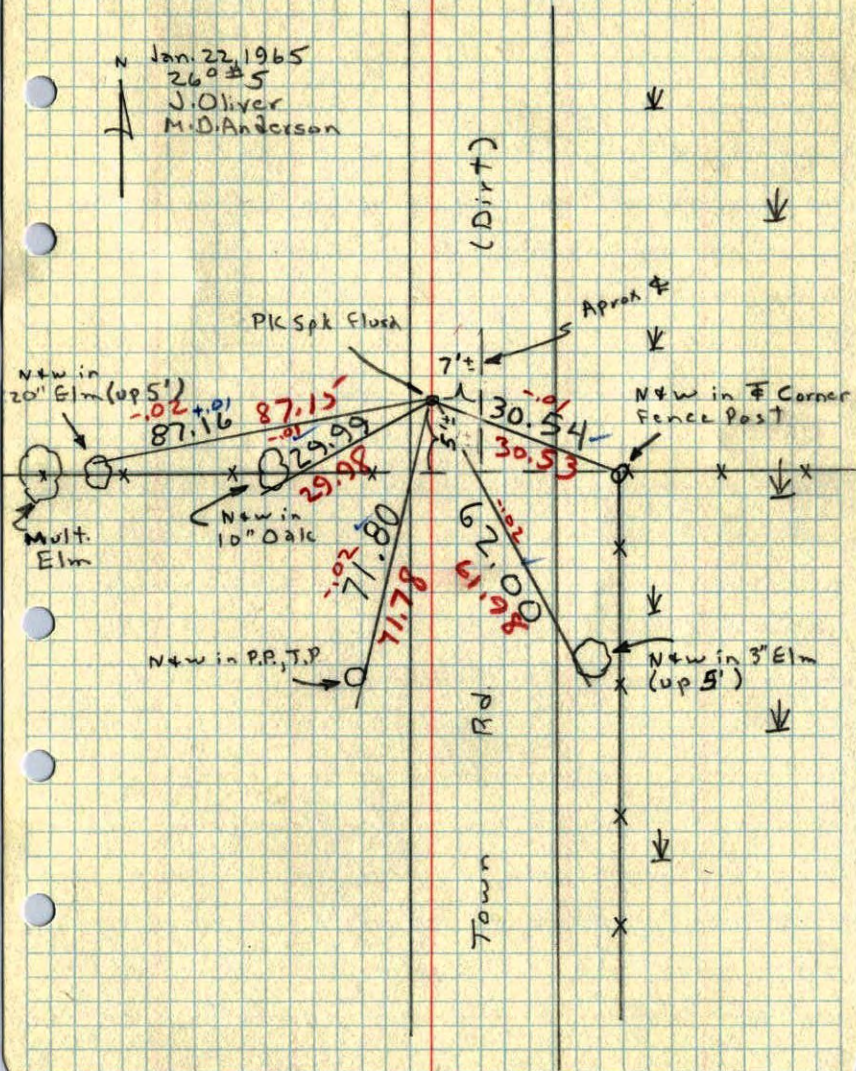 N
Jan. 22, 1965
26° #5
J. Oliver
M.D. Anderson
(Dirt)
Aprox ℄
PK Spk Flush
7'±
N+w in
20" Elm (up 5')
-.02 +.01
87.16
87.15
-.01
29.99
29.98
5'±
-.01
30.54
30.53
N+w in ℄ Corner
Fence Post
Mult.
Elm
N+w in
10" Oak
-.02
71.80
71.78
-.02
62.00
61.98
N+w in P.P., T.P
N+w in 3" Elm
(up 5')
Town Rd